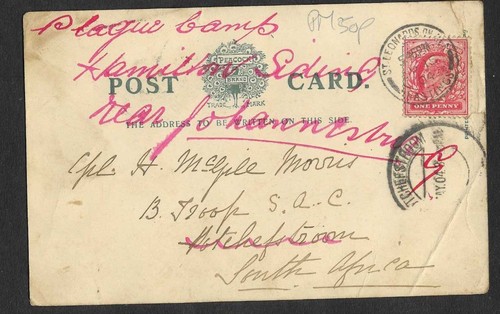 Plague Camp
PM 50p
Hamilton Siding
PEACOCK
POST CARD.
TRADE MARK
near Johannesburg
THE ADDRESS TO BE WRITTEN ON THIS SIDE.
ONE PENNY
ST LEONARDS ON
Cpl. H. McGill Morris
B. Troop S.A.C.
Potchefstroom
South Africa
TCHEFSTROOM
AY 04